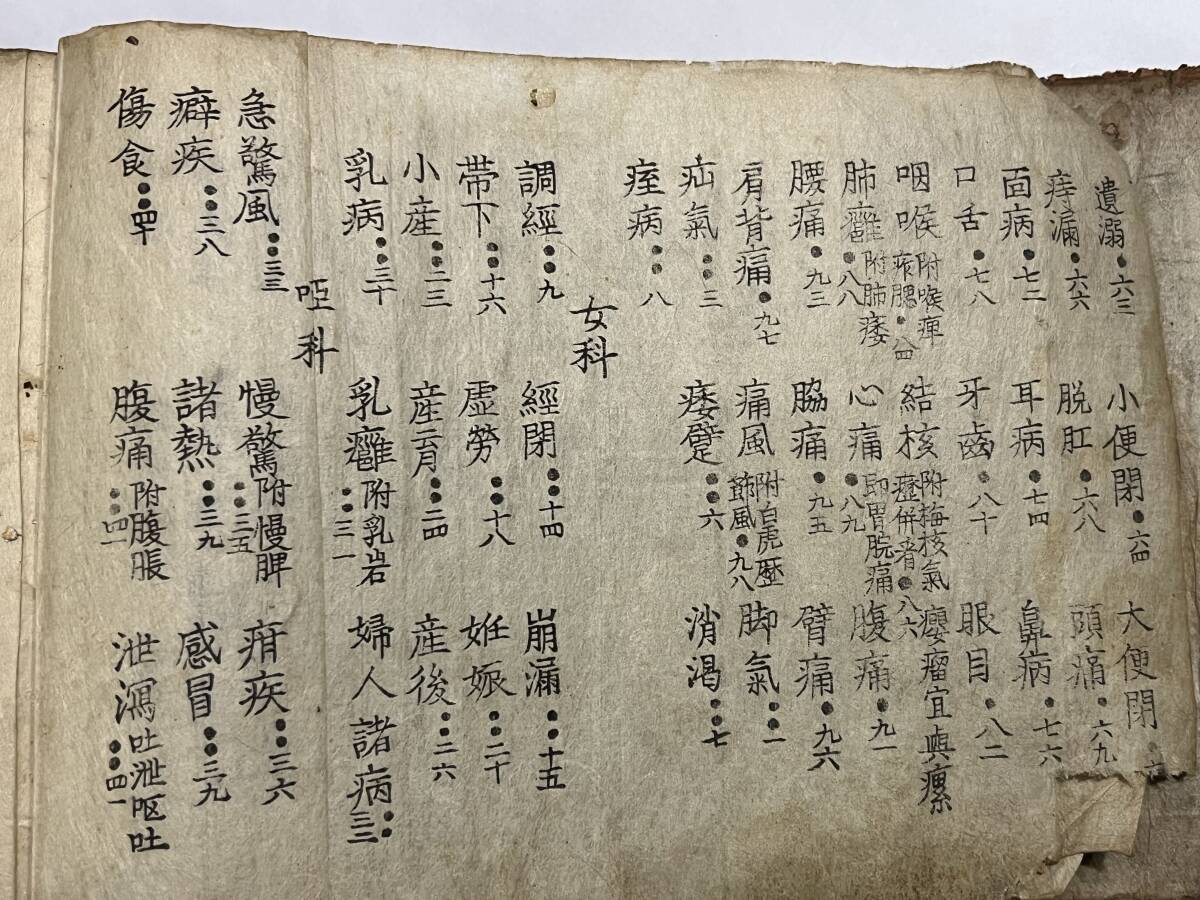 遺溺・六三 小便閉・六四 大便閉
痔漏・六六 脱肛・六八 頭痛・六九
面病・七二 耳病・七四 鼻病・七六
口舌・七八 牙齒・八十 眼目・八二
咽喉附喉痺痄腮・八四 結核附梅核氣瘰併者・八六 癭瘤宜與瘰
肺癰・八八附肺痿 心痛・八九即胃脘痛 腹痛・九一
腰痛・九三 脇痛・九五 臂痛・九六
肩背痛・九七 痛風附白虎歷節風・九八 脚氣・・一
疝氣・・三 痿躄・・六 消渴・・七
痓病・・八
女科
調經・・・九 經閉・・・十四 崩漏・・・十五
帶下・・・十六 虛勞・・十八 姙娠・・二十
小產・・二三 產育・・二四 產後・・二六
乳病・・三十 乳癰附乳岩・・三一 婦人諸病・・三三
啞科
急驚風・・・三三 慢驚附慢脾・・三五 疳疾・・・三六
癖疾・・・三八 諸熱・・三九 感冒・・三九
傷食・・・四十 腹痛附腹脹・・四一 泄瀉吐泄呕吐・・・四一